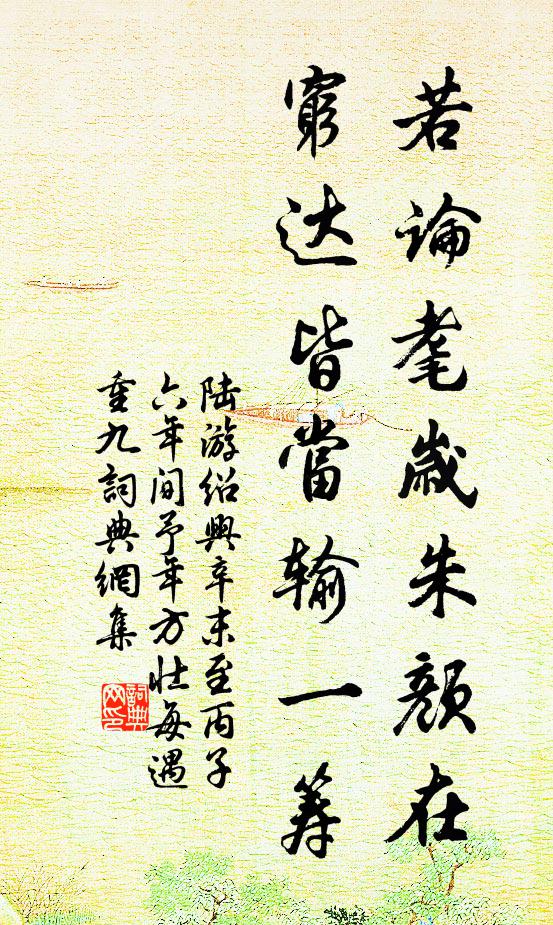 若論耄歲朱顏在
窮达皆當输一筹
陆游绍興辛未至丙子
六年间予年方壮每遇
重九詞典網集
詞典
网印